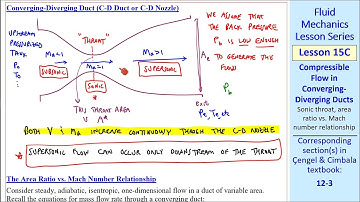 Converging-Diverging Duct (C-D Duct or C-D Nozzle)
UPSTREAM
PRESSURIZED
TANK
P₀
T₀
Ma<1
SUBSONIC
"THROAT"
Ma=1
SONIC
Ma>1
SUPERSONIC
THIS THROAT AREA
IS A*
WE ASSUME THAT
THE BACK PRESSURE
P_b IS LOW ENOUGH
TO GENERATE THE
FLOW
A_e
P_b
EXIT
P_e, T_e, etc
BOTH V & Ma INCREASE CONTINUOUSLY THROUGH THE C-D NOZZLE
* SUPERSONIC FLOW CAN OCCUR ONLY DOWNSTREAM OF THE THROAT
The Area Ratio vs. Mach Number Relationship
Consider steady, adiabatic, isentropic, one-dimensional flow in a duct of variable area.
Recall the equations for mass flow rate through a converging duct:
Fluid
Mechanics
Lesson Series
Lesson 15C
Compressible
Flow in
Converging-
Diverging Ducts
Sonic throat, area
ratio vs. Mach
number relationship
Corresponding
section(s) in
Çengel & Cimbala
textbook:
12-3